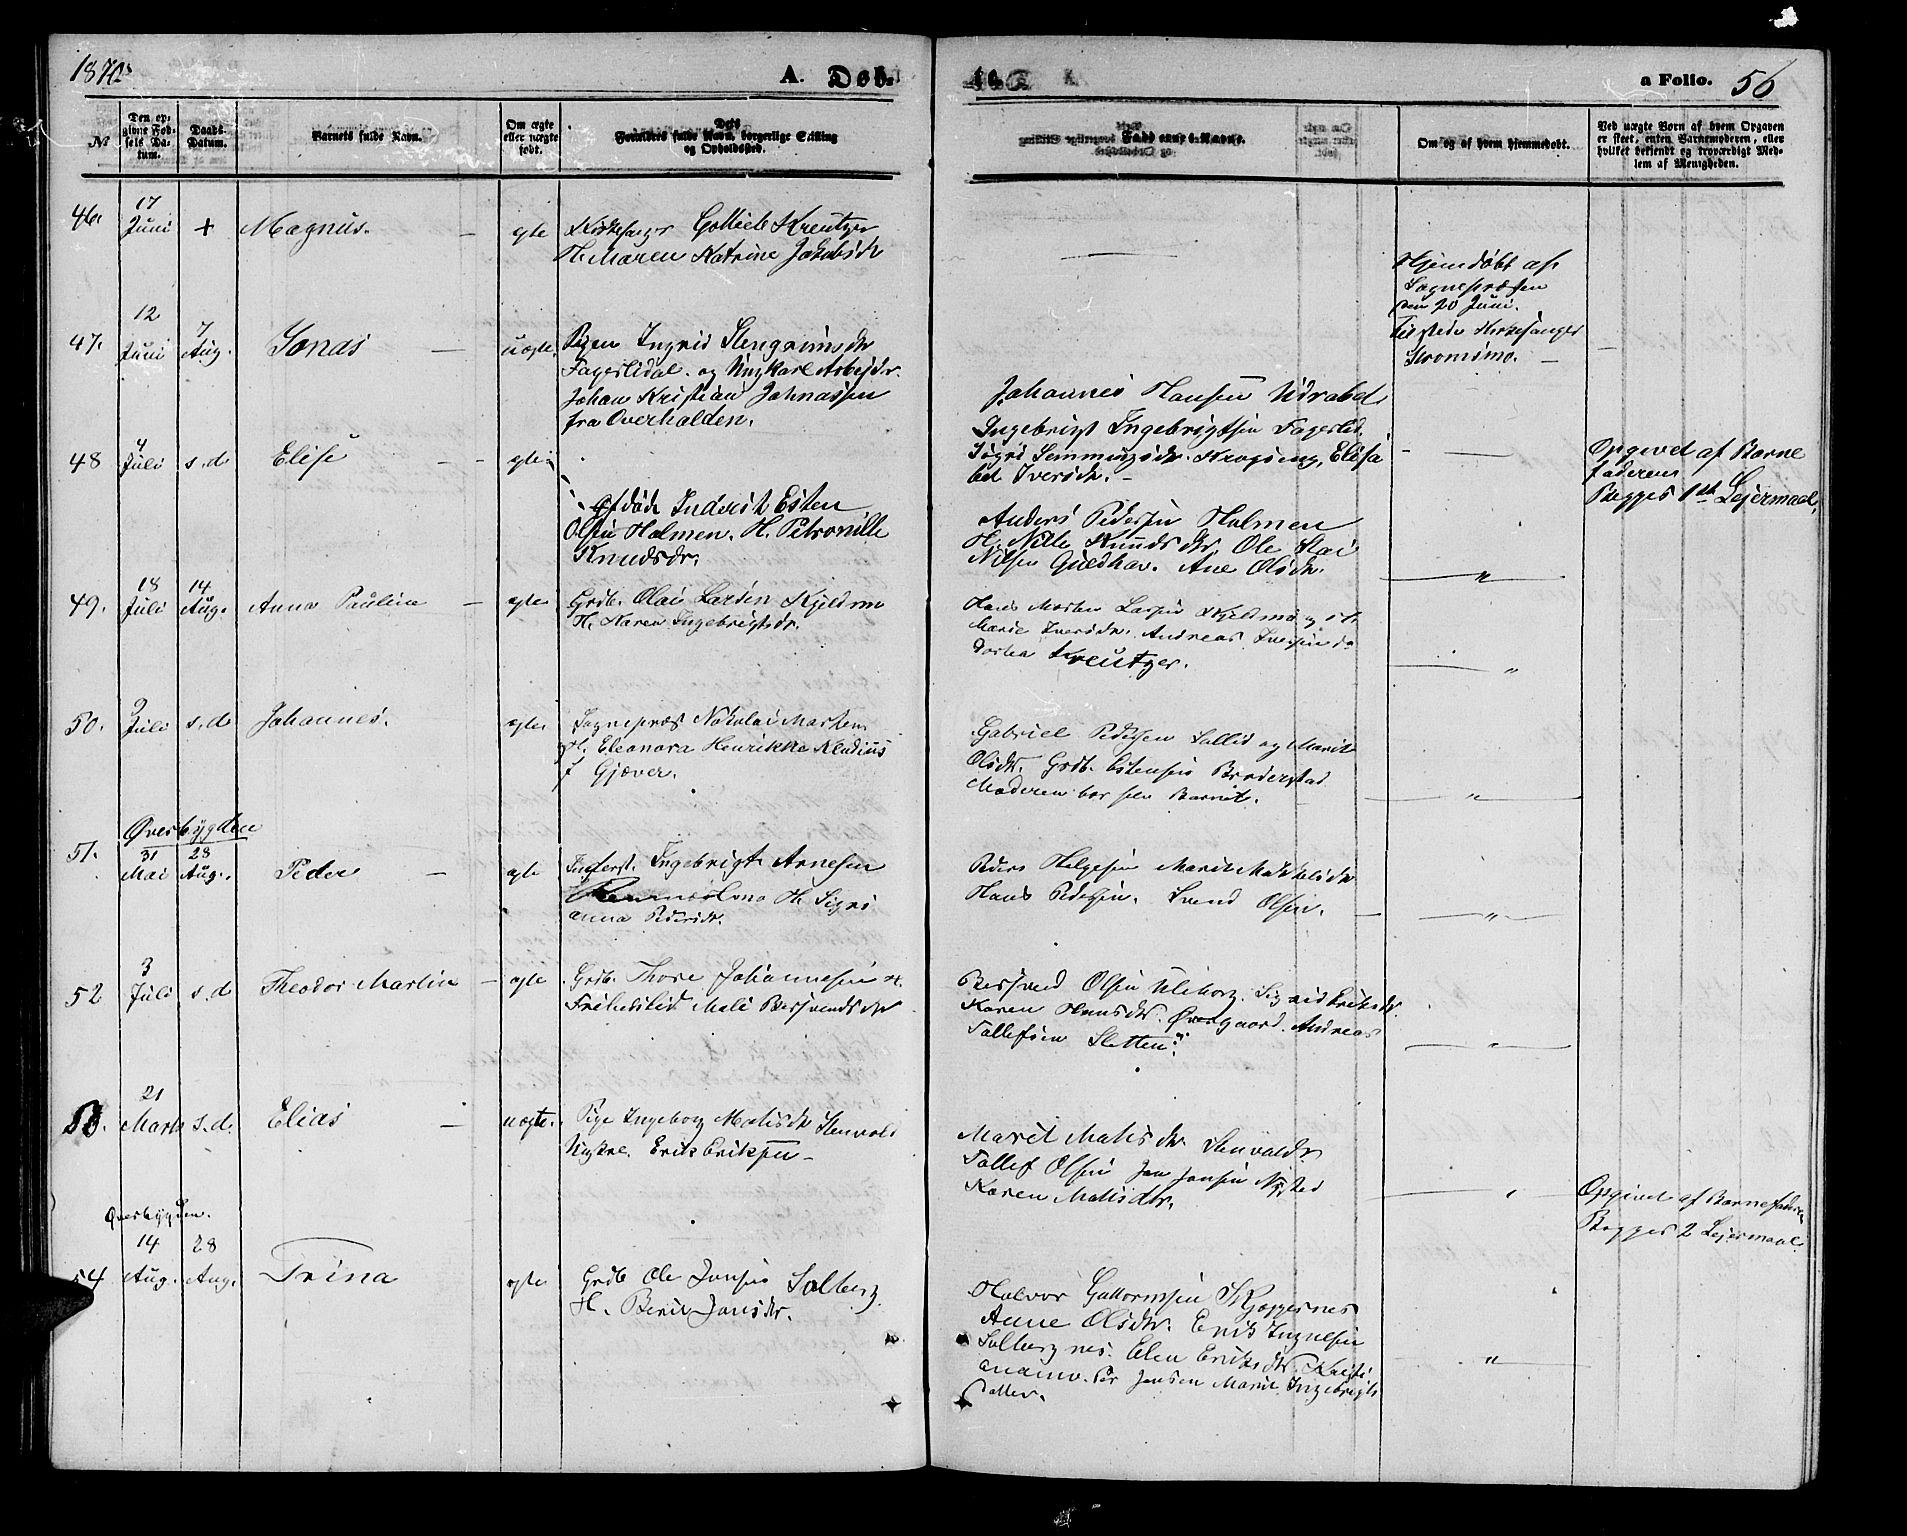 1870
A. Døb
te
a Folio. 56
№
Den opgivne Fødsels Datum.
Daabs-Datum.
Barnets fulde Navn.
Om ægte eller uægte født.
Dets Forældres fulde Navn, borgerlige Stilling og Opholdssted.
Faddernes Navne.
Om og af hvem hjemmedøbt.
Ved uægte Børn af hvem Opgaven er skeet, enten Barnemoderen, eller hvilket bekjendt og troværdigt Medlem af Menigheden.
46. 17 Juni + Magnus. – ægte Kirkesanger Gottlieb Kreutzer
H. Maren Katrine Jakobsdr
Hjemdøbt af
Sognepræsten
den 20 Juni.
Tilstede Kirkesanger
Stromsmo.
47. 12 Juni 7 Aug. Jonas – uægte. Pigen Ingrid Stengrimsdr
Fagerlidal. og Ungkarl Arbejdr.
Johan Kristian Johnassen
fra Overhalden.
Johannes Hansen
Ingebrigt Ingebrigtsen Fagerlid.
Sigri Semmingsdr. Krogseng, Elisa
bet Iversdr.
Opgivet af Barne
faderen
Begges 1ste Lejermaal.
48 4 Juli s.d Elise – ægte
afdøde Inderst Esten
Olsen Holmen. H. Petronille
Knudsdr.
Anders Pedersen Holmen
H. Nille Knudsdr. Ole
Nilsen Guldhav. Ane Olsdr.
49. 18 Juli 14 Aug. Anna Pauline – ægte Grdb. Olai Larsen Kjeldmo
H. Karen Ingebrigtsdr.
Hans Morten Larsen Kjeldmo og H.
Marie Iversdr. Andreas Iversen
Dorthea Kreutzer.
50. 9 Juli s.d Johannes. ægte Sognepræst Nikolai Martens
H. Eleonora Henrikke Klodius
f Gjæver.
Gabriel Pedersen Sollid og Marit
Olsdr. Grdb. Estensen Bruderstad
Moderen bar selv Barnet.
Øverbygden
51. 31 Mai 28 Aug. Peder – ægte Inderst. Ingebrigt Arnesen
H. Sigri
Anna Pedersdr.
Peder Helgesen Marit Mikkelsdr
Hans Pedersen. Svend Olsen.
52 3 Juli s.d Theodor Martin – ægte Grdb. Thore Johannesen H.
Frihedslid Mali Bersvendsdr
Bersvend Olsen Uleborg. Sigrid Eriksdr.
Karen Hansdr. Øvergaard. Andreas
Tollefsen Sletten.
53. 21 Marts s.d. Elias – uægte. Pige Ingeborg Matisdr Stenvold
Ungkrl. Erik Eriksen –
Marit Matisdr. Stenvold
Tollef Olsen Jon Jonsen Nysted
Karen Matisdr.
Opgivet af Barnefaderen
Begges 2 Lejermaal.
Øverbygden.
54 14 Aug. 28 Aug. Trina ægte Grdb Ole Jonsen Solberg
H. Berit Jonsdr.
Halvor Guttormsen Skjæggesnes
Anne Olsdr. Erik Ingvelsen
Solbergnes. Elen Eriksdr. Kristi
Per Jonsen Marit Ingebrigts
datter.